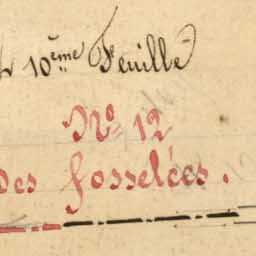 10ème Feuille
No 12
des fosselées.